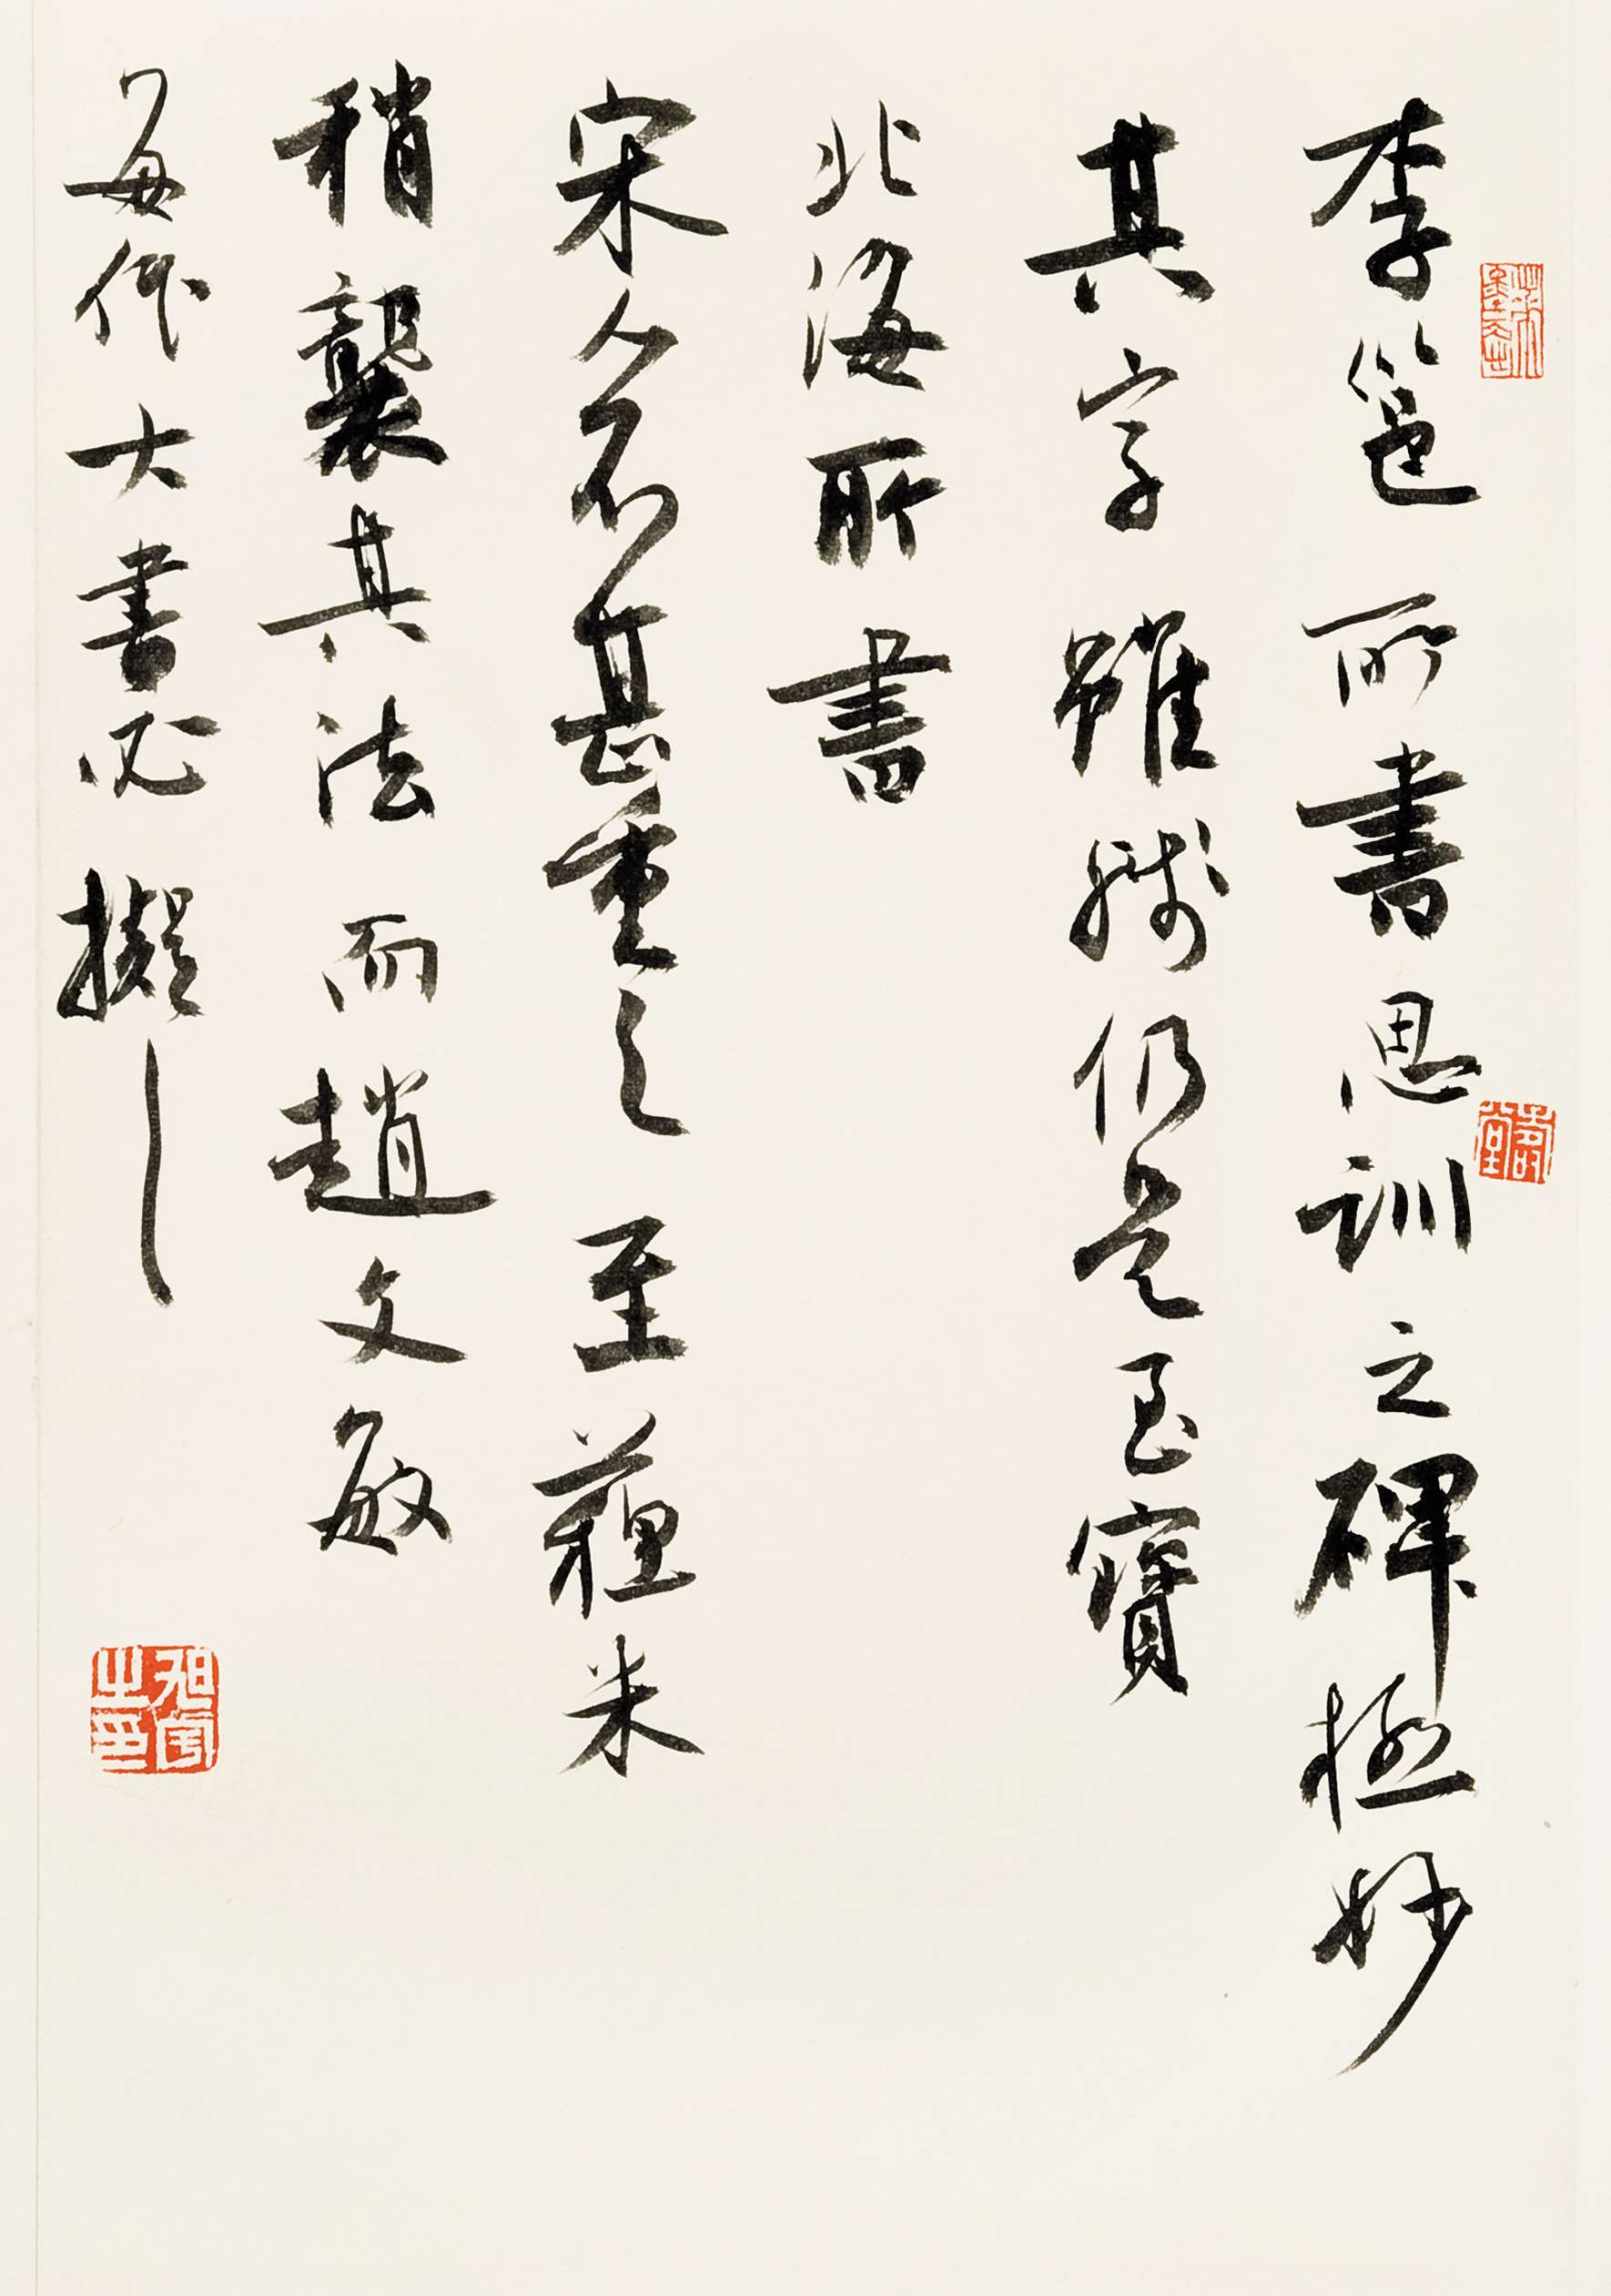 李邕所書思訓之碑極妙
其字雖殘仍是至寶
北海所書
宋人不甚重之至蘓米
稍襲其法而趙文敏
每作大書必擬之
旭宇之印